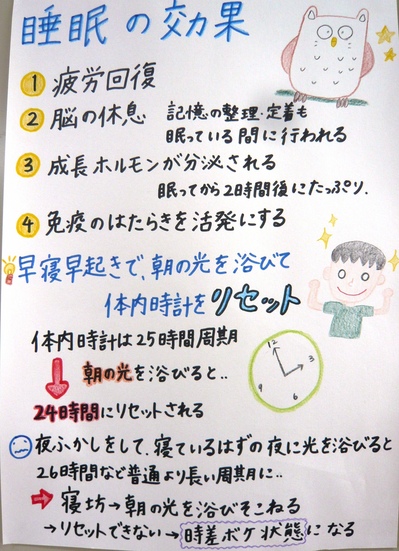 睡眠の効果
1 疲労回復
2 脳の休息 記憶の整理・定着も
眠っている間に行われる
3 成長ホルモンが分泌される
眠ってから2時間後にたっぷり.
4 免疫のはたらきを活発にする
早寝早起きで、朝の光を浴びて
体内時計をリセット
体内時計は25時間周期
朝の光を浴びると..
24時間にリセットされる
12
3
6
9
夜ふかしをして、寝ているはずの夜に光を浴びると
26時間など普通より長い周期に..
⇒ 寝坊→朝の光を浴びそこねる
→リセットできない→時差ボケ状態になる